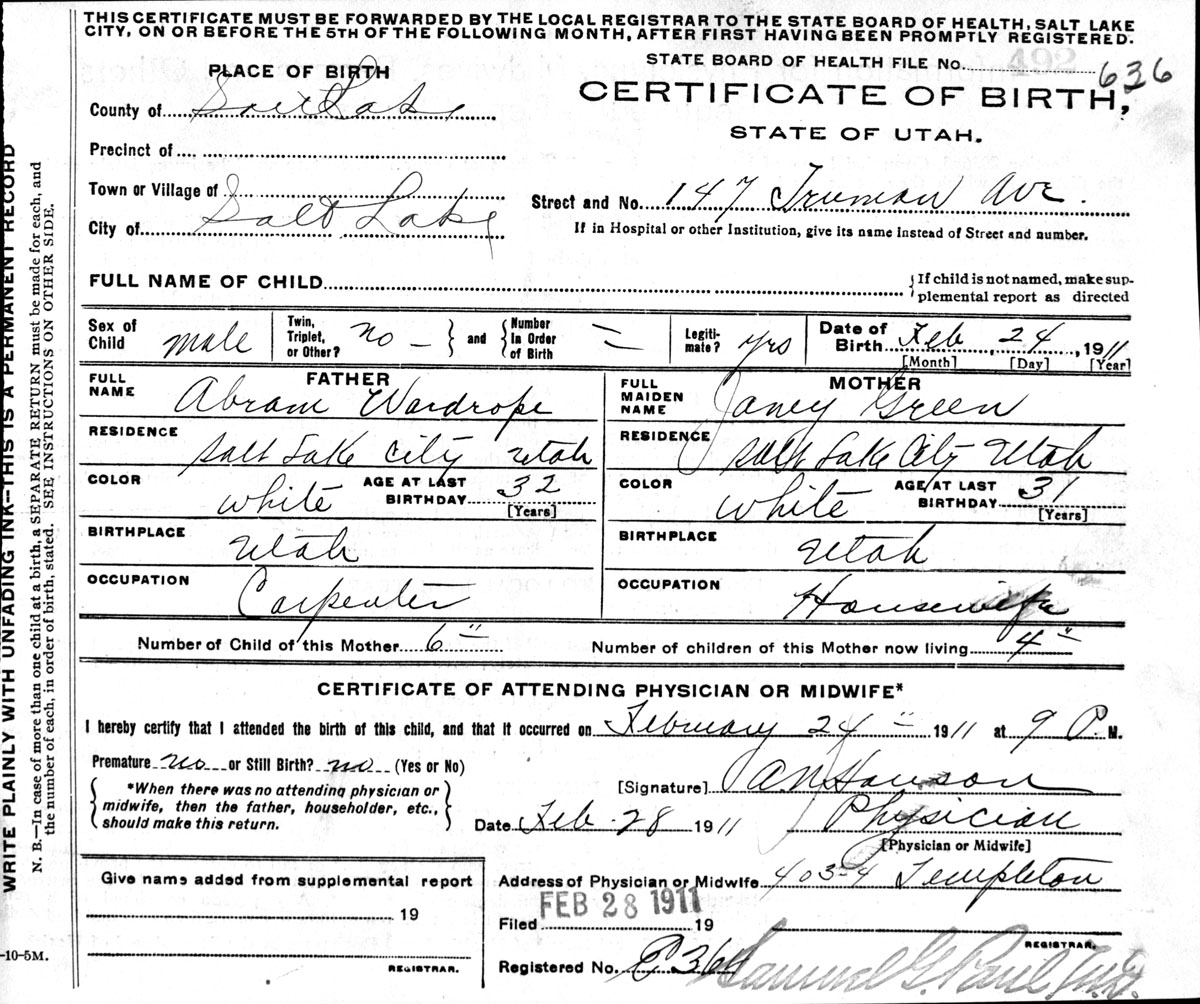 THIS CERTIFICATE MUST BE FORWARDED BY THE LOCAL REGISTRAR TO THE STATE BOARD OF HEALTH, SALT LAKE
CITY, ON OR BEFORE THE 5TH OF THE FOLLOWING MONTH, AFTER FIRST HAVING BEEN PROMPTLY REGISTERED.
STATE BOARD OF HEALTH FILE No. 492 636
PLACE OF BIRTH
CERTIFICATE OF BIRTH,
County of Salt Lake
STATE OF UTAH.
Precinct of
Town or Village of
Street and No. 147 Truman Ave.
City of Salt Lake
If in Hospital or other Institution, give its name instead of Street and number.
FULL NAME OF CHILD
If child is not named, make sup-
plemental report as directed
Sex of Child male Twin, Triplet, or Other? no - and Number In Order of Birth = Legiti-mate? yes Date of Birth Feb 24, 1911
[Month] [Day] [Year]
FATHER
FULL NAME Abram Wardrope
MOTHER
FULL MAIDEN NAME Janey Green
RESIDENCE Salt Lake City Utah
RESIDENCE Salt Lake City Utah
COLOR white AGE AT LAST BIRTHDAY 32 [Years]
COLOR white AGE AT LAST BIRTHDAY 31 [Years]
BIRTHPLACE Utah
BIRTHPLACE Utah
OCCUPATION Carpenter
OCCUPATION Housewife
Number of Child of this Mother 6" Number of children of this Mother now living 4"
CERTIFICATE OF ATTENDING PHYSICIAN OR MIDWIFE*
I hereby certify that I attended the birth of this child, and that it occurred on February 24" 1911 at 9 P. M.
Premature no or Still Birth? no (Yes or No)
*When there was no attending physician or
midwife, then the father, householder, etc.,
should make this return.
[Signature] A N Hanson
Date Feb - 28 1911 Physician
[Physician or Midwife]
Give name added from supplemental report
19
REGISTRAR.
Address of Physician or Midwife 403-4 Templeton
Filed FEB 28 1911 19
REGISTRAR.
Registered No. Samuel G. Paul
WRITE PLAINLY WITH UNFADING INK—THIS IS A PERMANENT RECORD
N. B.—In case of more than one child at a birth, a SEPARATE RETURN must be made for each, and
the number of each, in order of birth, stated. SEE INSTRUCTIONS ON OTHER SIDE.
-10-5M.